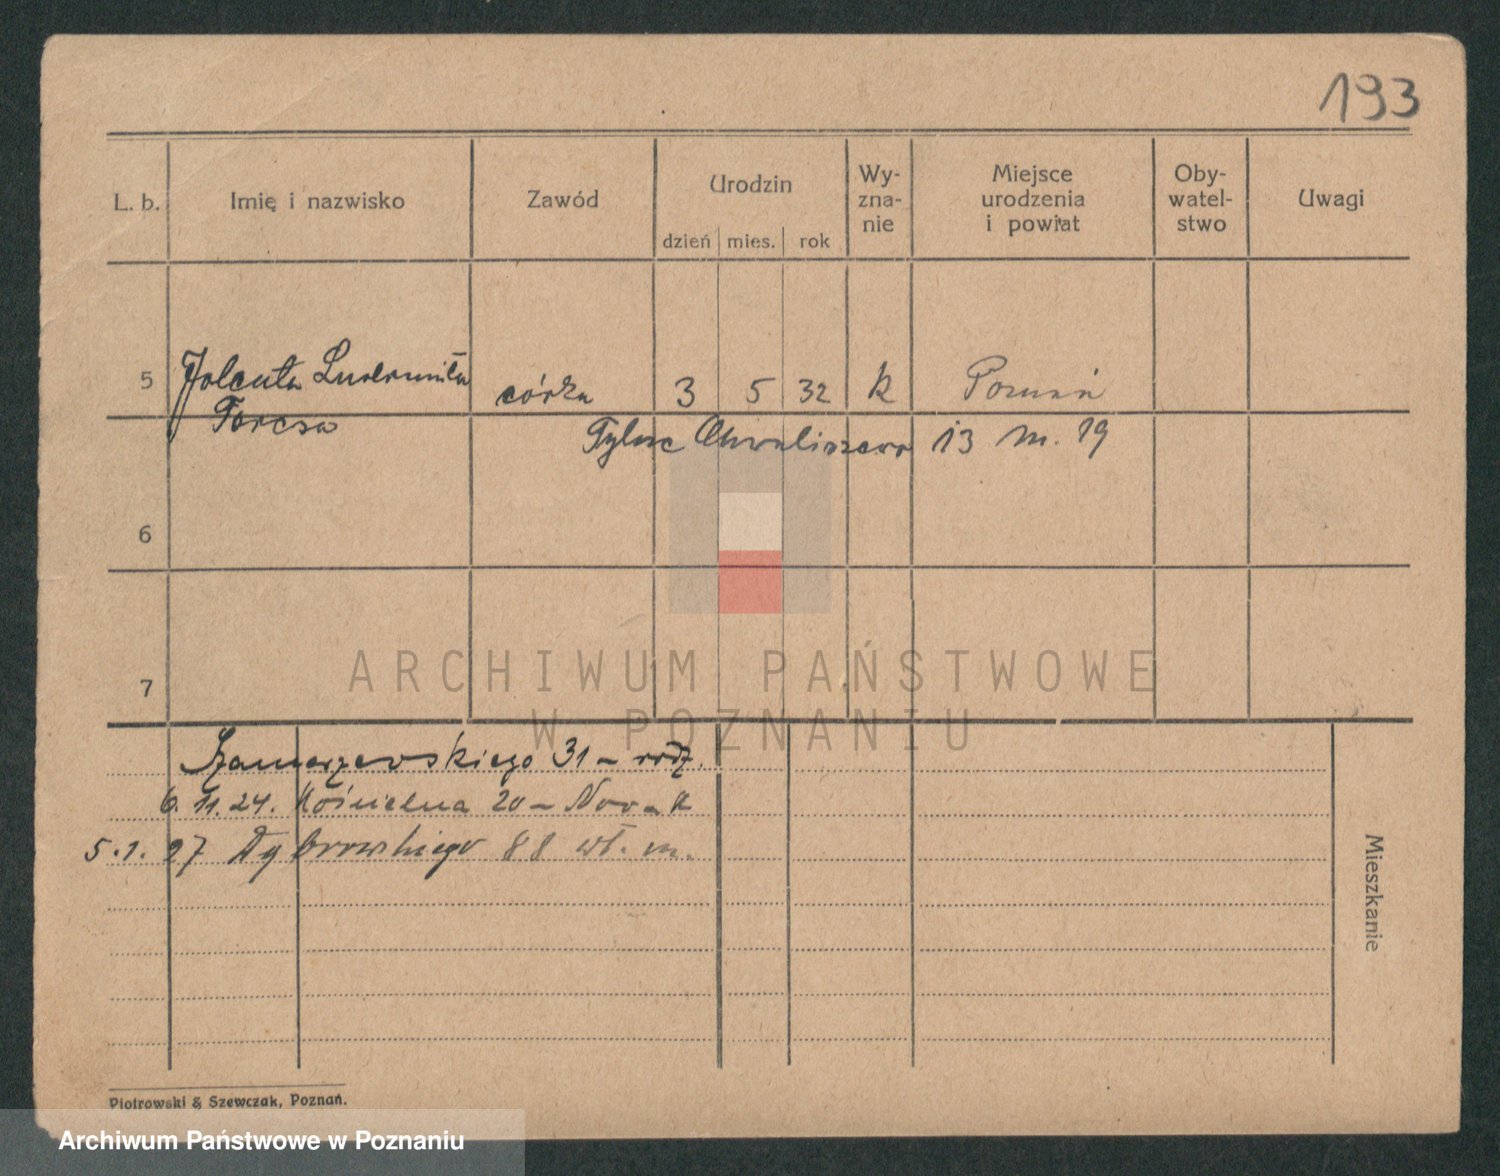 193
L. b. Imię i nazwisko Zawód Urodzin Wy-zna-nie Miejsce urodzenia i powiat Oby-watel-stwo Uwagi
dzień mies. rok
5 Jolenta Ludomiła córka 3 5 32 k Poznań
Chwaliszewo 13 m. 19
6
7
ARCHIWUM PAŃSTWOWE
W POZNANIU
Szamarzewskiego 31 – rodz.
6. 11. 24. Kościelna 20 – Nowak
5. 1. 27 Dąbrowskiego 88 wł. m.
Mieszkanie
Piotrowski & Szewczak, Poznań.
Archiwum Państwowe w Poznaniu